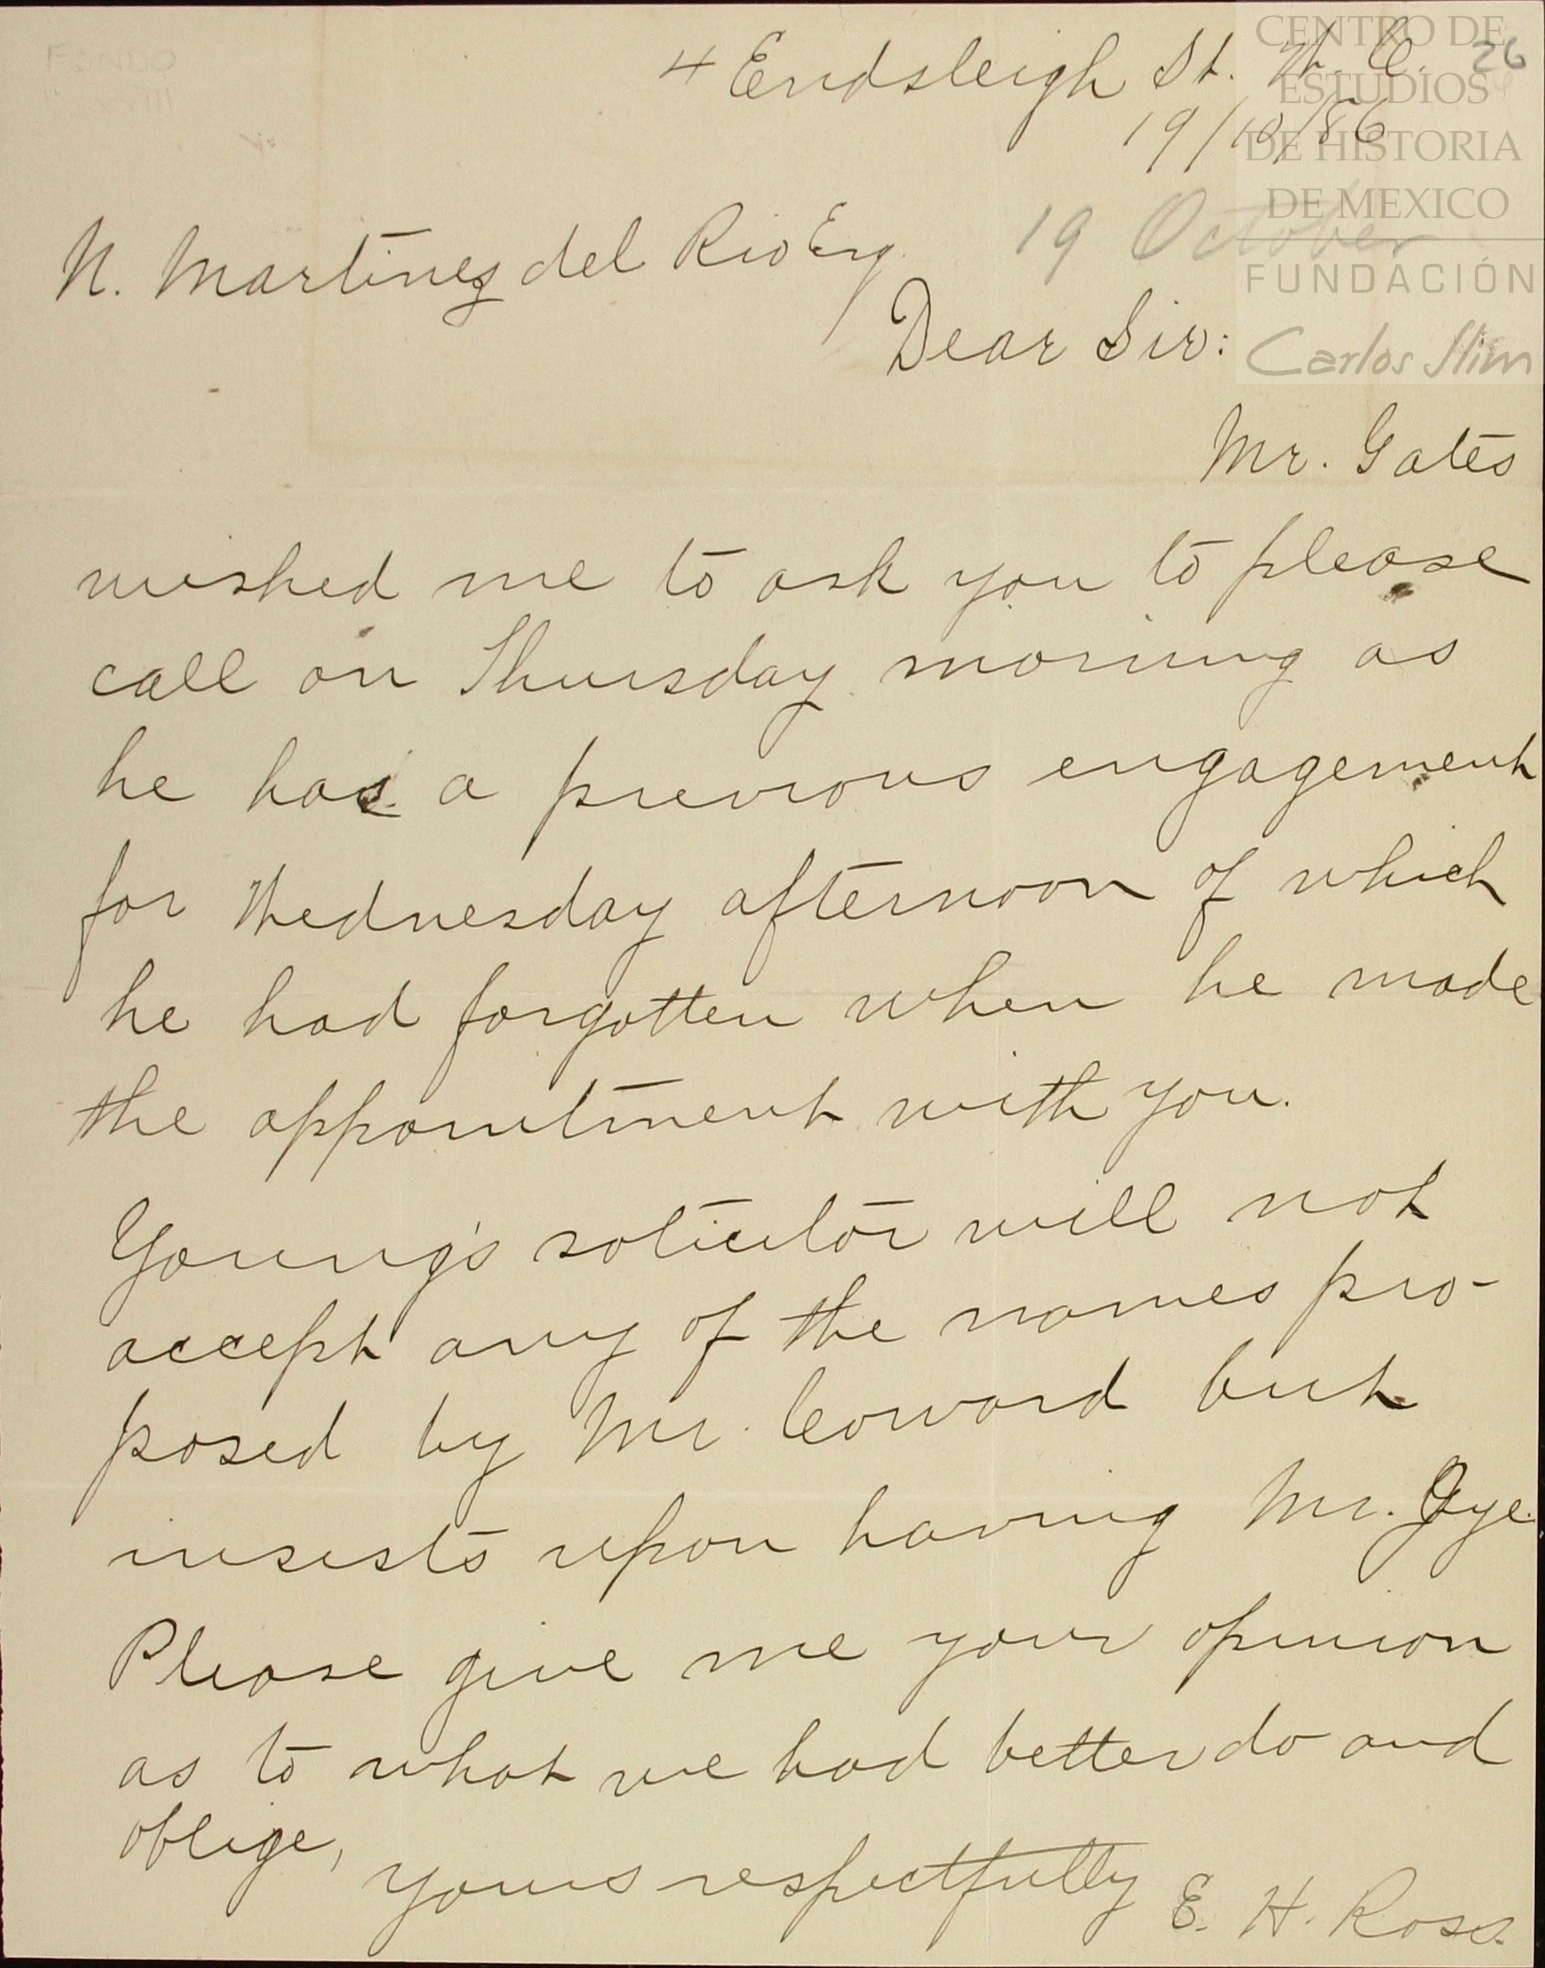 FONDO
4 Endsleigh St. W. C. 26
19/10/86
19 October
N. Martinez del Rio Esq.
Dear Sir:
Mr. Gates
wished me to ask you to please
call on Thursday morning as
he has a previous engagement
for Wednesday afternoon of which
he had forgotten when he made
the appointment with you.
Young's solicitor will not
accept any of the names pro-
posed by Mr. Coward but
insists upon having Mr. Gye.
Please give me your opinion
as to what we had better do and
oblige,
yours respectfully E. H. Ross.
CENTRO DE
ESTUDIOS
DE HISTORIA
DE MEXICO
FUNDACIÓN
Carlos Slim